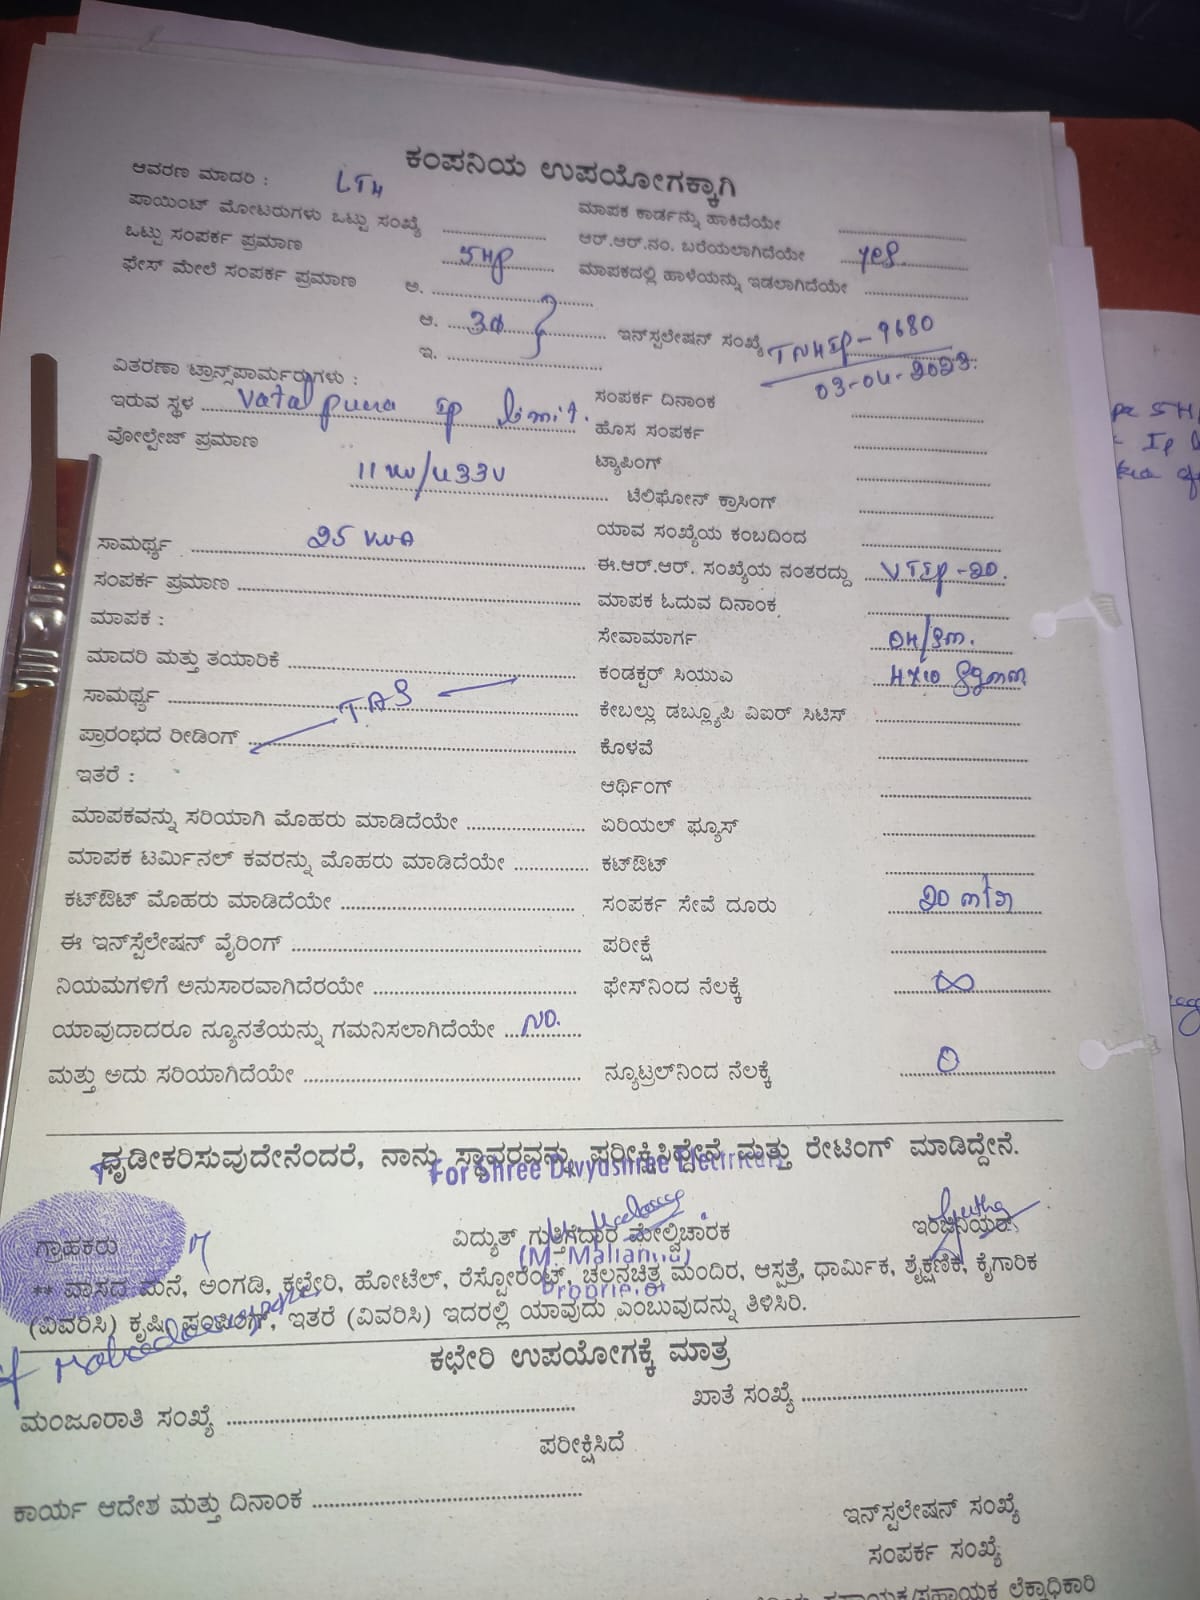 ಕಂಪನಿಯ ಉಪಯೋಗಕ್ಕಾಗಿ
ಆವರಣ ಮಾದರಿ : LT4
ಮಾಪಕ ಕಾರ್ಡನ್ನು ಹಾಕಿದೆಯೇ
ಪಾಯಿಂಟ್ ಮೋಟರುಗಳು ಒಟ್ಟು ಸಂಖ್ಯೆ
ಆರ್.ಆರ್.ನಂ. ಬರೆಯಲಾಗಿದೆಯೇ yes.
ಒಟ್ಟು ಸಂಪರ್ಕ ಪ್ರಮಾಣ 5HP
ಮಾಪಕದಲ್ಲಿ ಹಾಳೆಯನ್ನು ಇಡಲಾಗಿದೆಯೇ
ಫೇಸ್ ಮೇಲೆ ಸಂಪರ್ಕ ಪ್ರಮಾಣ ಅ.
ಆ. 3Φ
ಇನ್‌ಸ್ಟಲೇಷನ್ ಸಂಖ್ಯೆ TNHIP-9680
03-04-2023.
ಇ.
ವಿತರಣಾ ಟ್ರಾನ್ಸ್‌ಪಾರ್ಮರುಗಳು :
ಸಂಪರ್ಕ ದಿನಾಂಕ
ಇರುವ ಸ್ಥಳ Vatalpura IP limit.
ಹೊಸ ಸಂಪರ್ಕ
ವೋಲ್ಟೇಜ್ ಪ್ರಮಾಣ 11KV/433V
ಟ್ಯಾಪಿಂಗ್
ಟೆಲಿಫೋನ್ ಕ್ರಾಸಿಂಗ್
ಸಾಮರ್ಥ್ಯ 25 KVA
ಯಾವ ಸಂಖ್ಯೆಯ ಕಂಬದಿಂದ
ಈ.ಆರ್.ಆರ್. ಸಂಖ್ಯೆಯ ನಂತರದ್ದು VTIP-20.
ಸಂಪರ್ಕ ಪ್ರಮಾಣ
ಮಾಪಕ ಓದುವ ದಿನಾಂಕ
ಮಾಪಕ :
ಸೇವಾಮಾರ್ಗ OH/SM.
ಮಾದರಿ ಮತ್ತು ತಯಾರಿಕೆ
ಕಂಡಕ್ಟರ್ ಸಿಯುಎ 4x10 sqmm
ಸಾಮರ್ಥ್ಯ TAS
ಕೇಬಲ್ಲು ಡಬ್ಲ್ಯೂಪಿ ವಿಐರ್ ಸಿಟಿಸ್
ಪ್ರಾರಂಭದ ರೀಡಿಂಗ್
ಕೊಳವೆ
ಇತರೆ :
ಆರ್ಥಿಂಗ್
ಮಾಪಕವನ್ನು ಸರಿಯಾಗಿ ಮೊಹರು ಮಾಡಿದೆಯೇ
ಏರಿಯಲ್ ಫ್ಯೂಸ್
ಮಾಪಕ ಟರ್ಮಿನಲ್ ಕವರನ್ನು ಮೊಹರು ಮಾಡಿದೆಯೇ
ಕಟ್‌ಔಟ್
ಕಟ್‌ಔಟ್ ಮೊಹರು ಮಾಡಿದೆಯೇ
ಸಂಪರ್ಕ ಸೇವೆ ದೂರು 20 mtr
ಈ ಇನ್‌ಸ್ಟೆಲೇಷನ್ ವೈರಿಂಗ್
ಪರೀಕ್ಷೆ
ನಿಯಮಗಳಿಗೆ ಅನುಸಾರವಾಗಿದೆರಯೇ
ಫೇಸ್‌ನಿಂದ ನೆಲಕ್ಕೆ ∞
ಯಾವುದಾದರೂ ನ್ಯೂನತೆಯನ್ನು ಗಮನಿಸಲಾಗಿದೆಯೇ NO.
ಮತ್ತು ಅದು ಸರಿಯಾಗಿದೆಯೇ
ನ್ಯೂಟ್ರಲ್‌ನಿಂದ ನೆಲಕ್ಕೆ 0
ಧೃಡೀಕರಿಸುವುದೇನೆಂದರೆ, ನಾನು ಸ್ಥಾವರವನ್ನು ಪರೀಕ್ಷಿಸಿದ್ದೇನೆ ಮತ್ತು ರೇಟಿಂಗ್ ಮಾಡಿದ್ದೇನೆ.
For Shree Divyashree Electricals
ಗ್ರಾಹಕರು
ವಿದ್ಯುತ್ ಗುತ್ತಿಗೆದಾರ ಮೇಲ್ವಿಚಾರಕ
ಇಂಜಿನಿಯರ್
** ವಾಸದ ಮನೆ, ಅಂಗಡಿ, ಕಛೇರಿ, ಹೋಟೆಲ್, ರೆಸ್ಟೋರೆಂಟ್, ಚಲನಚಿತ್ರ ಮಂದಿರ, ಆಸ್ಪತ್ರೆ, ಧಾರ್ಮಿಕ, ಶೈಕ್ಷಣಿಕ, ಕೈಗಾರಿಕ
(ವಿವರಿಸಿ) ಕೃಷಿ ಪಂಪಿಂಗ್, ಇತರೆ (ವಿವರಿಸಿ) ಇದರಲ್ಲಿ ಯಾವುದು ಎಂಬುವುದನ್ನು ತಿಳಿಸಿರಿ.
ಕಛೇರಿ ಉಪಯೋಗಕ್ಕೆ ಮಾತ್ರ
ಮಂಜೂರಾತಿ ಸಂಖ್ಯೆ
ಖಾತೆ ಸಂಖ್ಯೆ
ಪರೀಕ್ಷಿಸಿದೆ
ಕಾರ್ಯ ಆದೇಶ ಮತ್ತು ದಿನಾಂಕ
ಇನ್‌ಸ್ಟಲೇಷನ್ ಸಂಖ್ಯೆ
ಸಂಪರ್ಕ ಸಂಖ್ಯೆ
ಲೆಕ್ಕಾಧಿಕಾರಿ